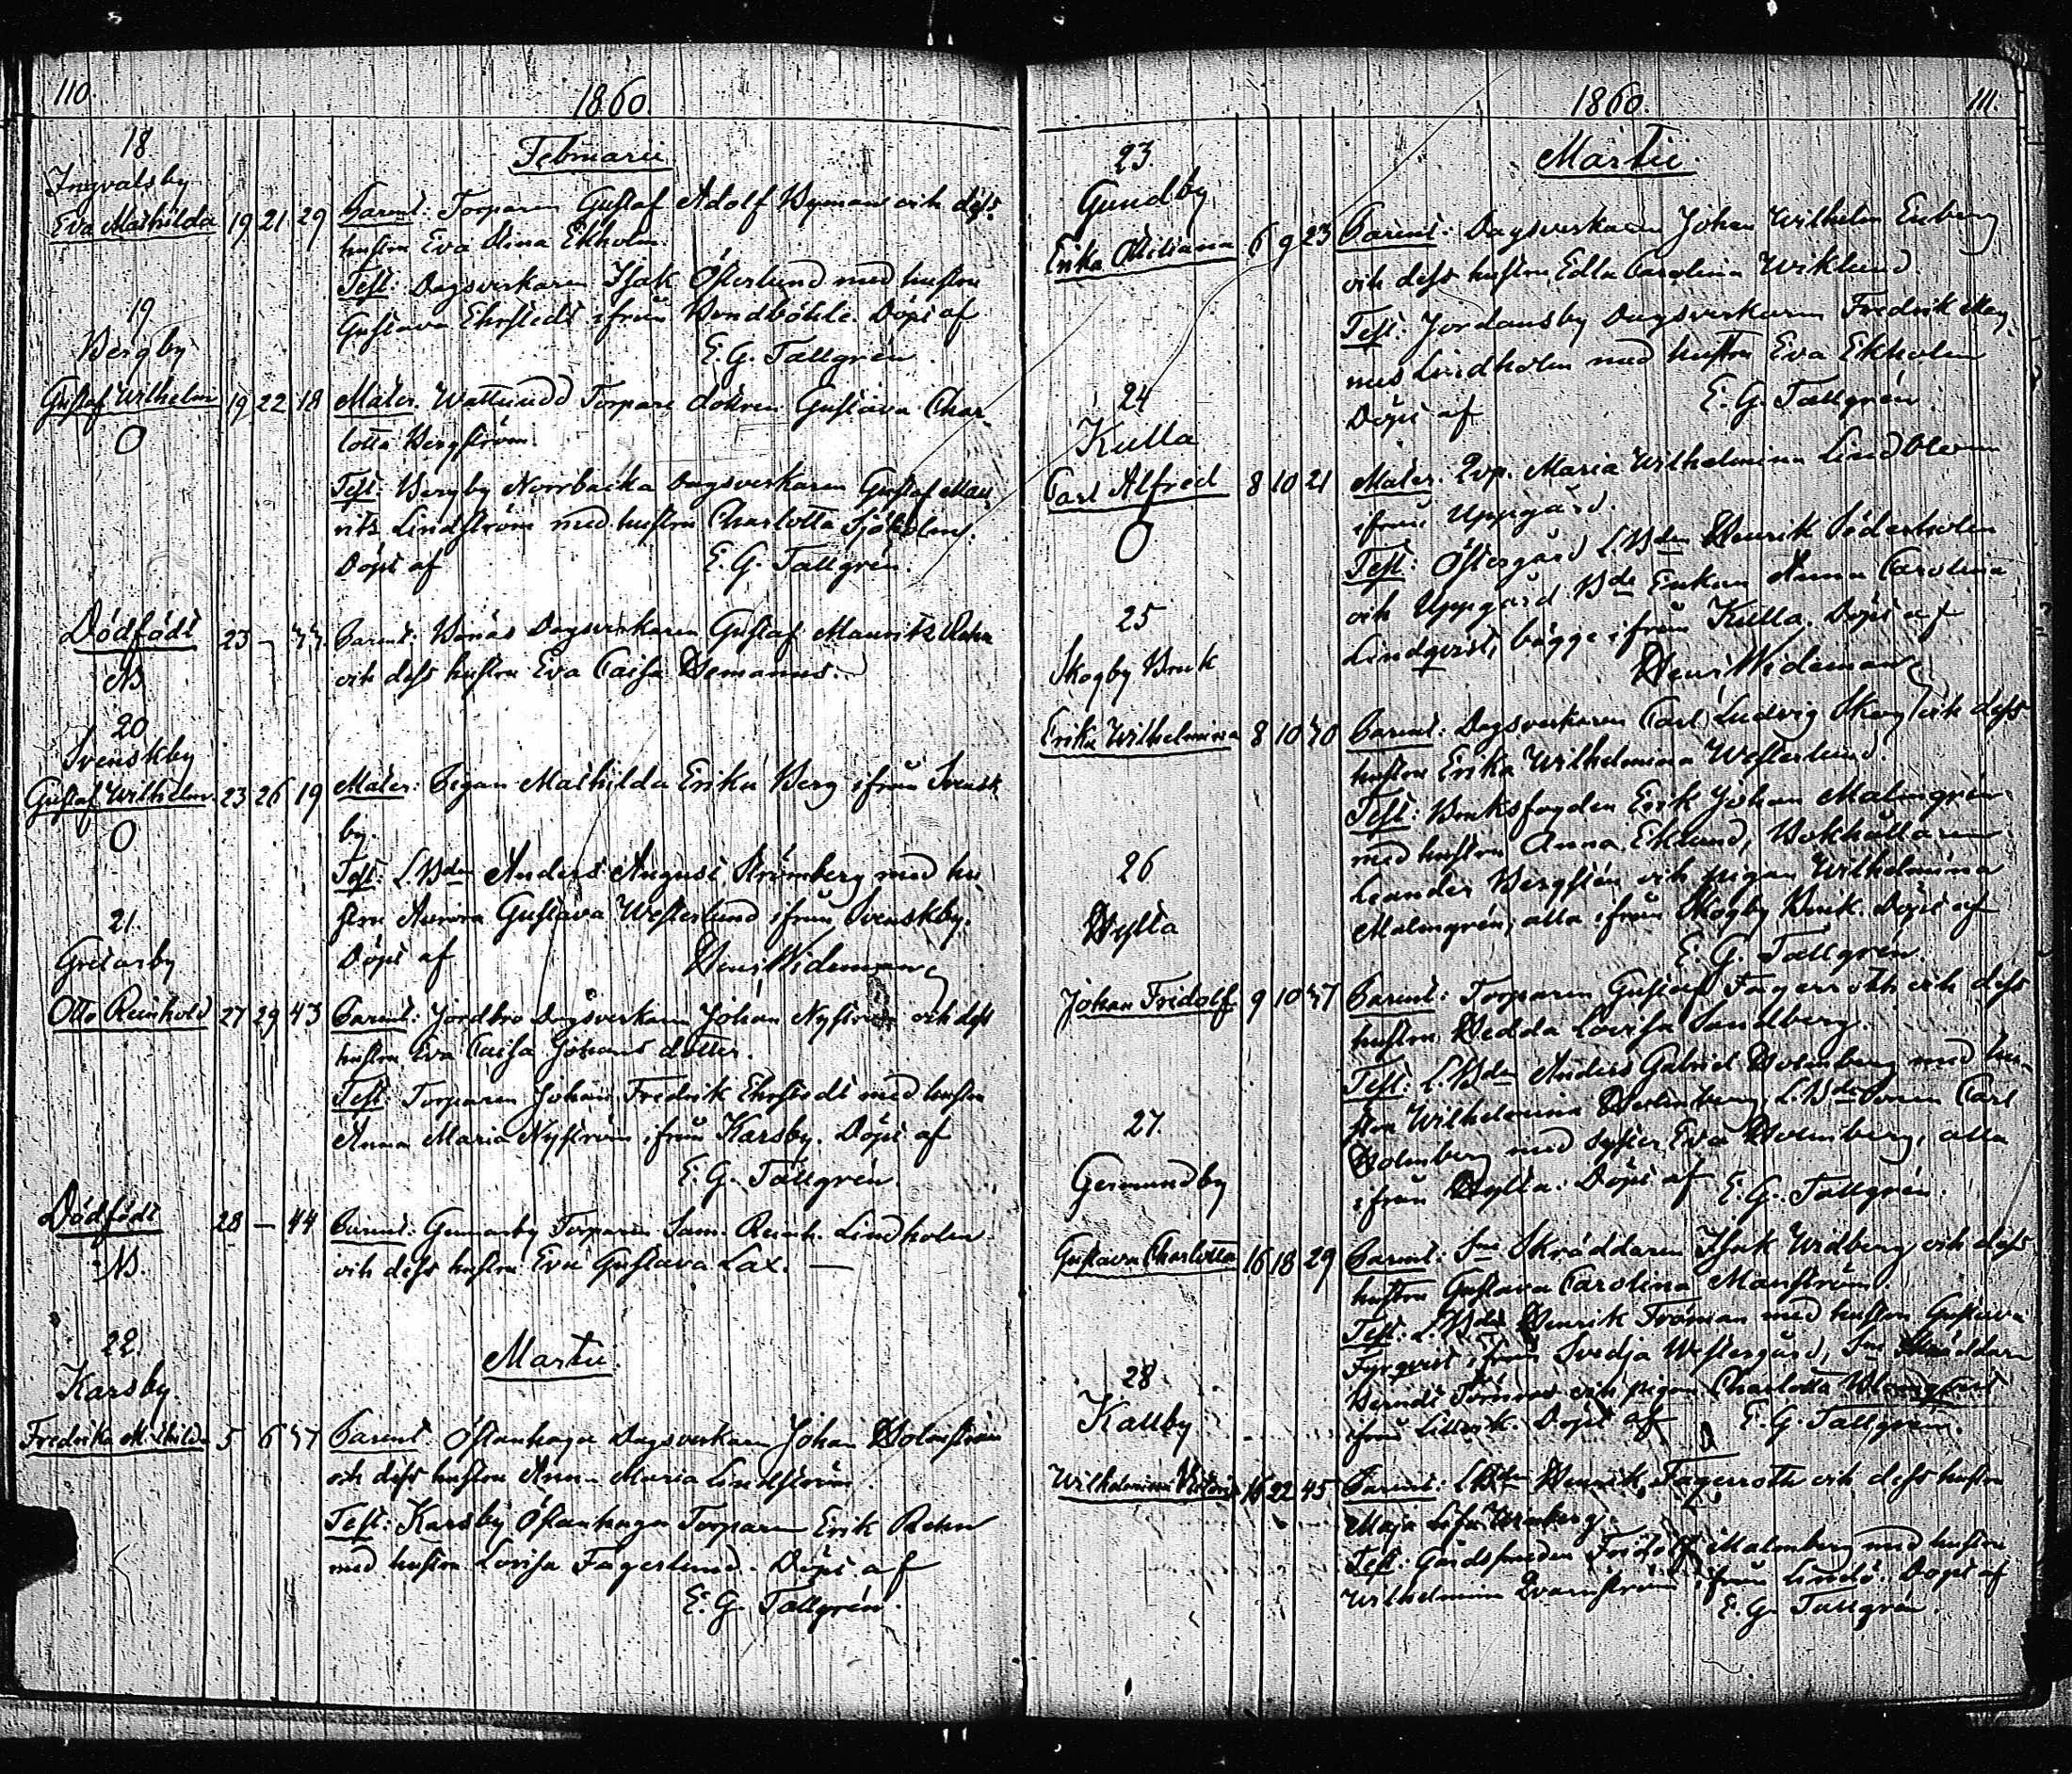 110.
1860.
Februarii.
18
Ingvalsby
Eva Mathilda 19 21 29 Parent: Torparen Gustaf Adolf Nyman och dess
hustru Eva Stina Ekholm.
Test: Dagsverkaren Isak Österlund med hustru
Gustava Ehrstedt ifrån Bondböhle. Döpt af
E. G. Tallgrén.
19
Bergby
Gustaf Wilhelm 19 22 18 Mater Torpare dottren Gustava Char
O
lotta Bergström.
Test: Bergby Norrbacka Dagsverkaren Gustaf Mau
ritz Lindström med hustru Charlotta Sjöholm.
Döpt af E. G. Tallgrén.
Dödfödt 23 – Parent: Dagsverkaren Gustaf Mauritz Rehn
NB.
och dess hustru Eva Caisa
20
Svenskby
Gustaf Wilhelm 23 26 19 Mater: Pigan Mathilda Erika Berg ifrån Svensk
O
by.
Test: L.Bden Anders August Strömberg med hu
stru Aurora Gustava Westerlund ifrån Svenskby.
Döpt af Henr Wideman
21.
Gretarby
Otto Reinhold 27 29 43 Parent: Jordbro Dagsverkaren Johan Nyström och dess
hustru Eva Caisa Johans dotter.
Test: Torparen Johan Fredrik Ehrstedt med hustru
Anna Maria Nyström ifrån Karsby. Döpt af
E. G. Tallgrén.
Dödfödt 28 – 44 Parent: Gunnarby Torparen Sam. Reinh. Lindholm
NB.
och dess hustru Eva Gustava Lax. —
Martii.
22.
Karsby.
Fredrika Mathilda 5 6 Parent: Östanhaga Dagsverkaren Johan Holmström
och dess hustru Anna Maria Lindström.
Test: Karsby Östanhaga Torparen Erik Rehn
med hustru Lovisa Fagerlund. Döpt af
E. G. Tallgrén.
1860.
111.
Martii.
23.
Gundby
Erika 6 9 23 Parent: Dagsverkaren Johan Wilhelm Enberg
och dess hustru Edla Carolina Wiklund.
Test: Jordansby Dagsverkaren Fredrik Mag
nus Lindholm med hustru Eva Ekholm
Döpt af E. G. Tallgrén.
24
Kulla
Carl Alfred 8 10 21 Mater. Qvp. Maria Wilhelmina Lindblom
O
ifrån Uppgård.
Test: Östergård L.Bden Henrik Söderholm
och Uppgård Bde Enkan Anna Carolina
Lindqvist, bägge ifrån Kulla. Döpt af
Henr Wideman
25
Skogby Bruk
Erika Wilhelmina 8 10 Parent: Dagsverkaren Carl Ludvig Skog och dess
hustru Erika Wilhelmina Westerlund.
Test: Bruksfogden Erik Johan Malmgrén
med hustru Anna Eklund, Bokhållaren
Leander Bergstén och pigan Wilhelmina
Malmgrén, alla ifrån Skogby Bruk. Döpt af
E. G. Tallgrén.
26
Hylta
Johan Fridolf 9 10 Parent: Torparen Gustaf Fagerroth och dess
hustru Hedda Lovisa Sandberg.
Test: L.Bden Anders Gabriel Holmberg med hu
stru Wilhelmina Holmberg, L.Bde Sonen Carl
Holmberg med syster Eva Holmberg, alla
ifrån Hylta. Döpt af E. G. Tallgrén.
27.
Germundby
Gustava Charlotta 16 18 29 Parent: Sn Skräddaren Isak Widberg och dess
hustru Gustava Carolina Manström.
Test: L.Bden Henrik Fröman med hustru Gustava
Fyrqvist ifrån Svedja Westergård, Sn Skräddare
Berndt Törnroos och pigan Charlotta Blomqvist
ifrån Lillvik. Döpt af E. G. Tallgrén.
28
Kallby
Wilhelmina 16 22 45 Parent: L.Bden Henrik Fagerroth och dess hustru
Maja Lisa
Test: Gårdssmeden Fridolf Malmberg med hustru
Wilhelmina Qvarnström ifrån Lindö. Döpt af
E. G. Tallgrén.